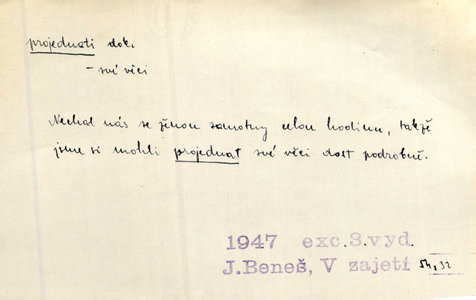 projednati dok.
– své věci
Nechal nás se ženou samotny celou hodinu, takže
jsme si mohli projednat své věci dost podrobně.
1947 exc.3.vyd.
J.Beneš, V zajetí